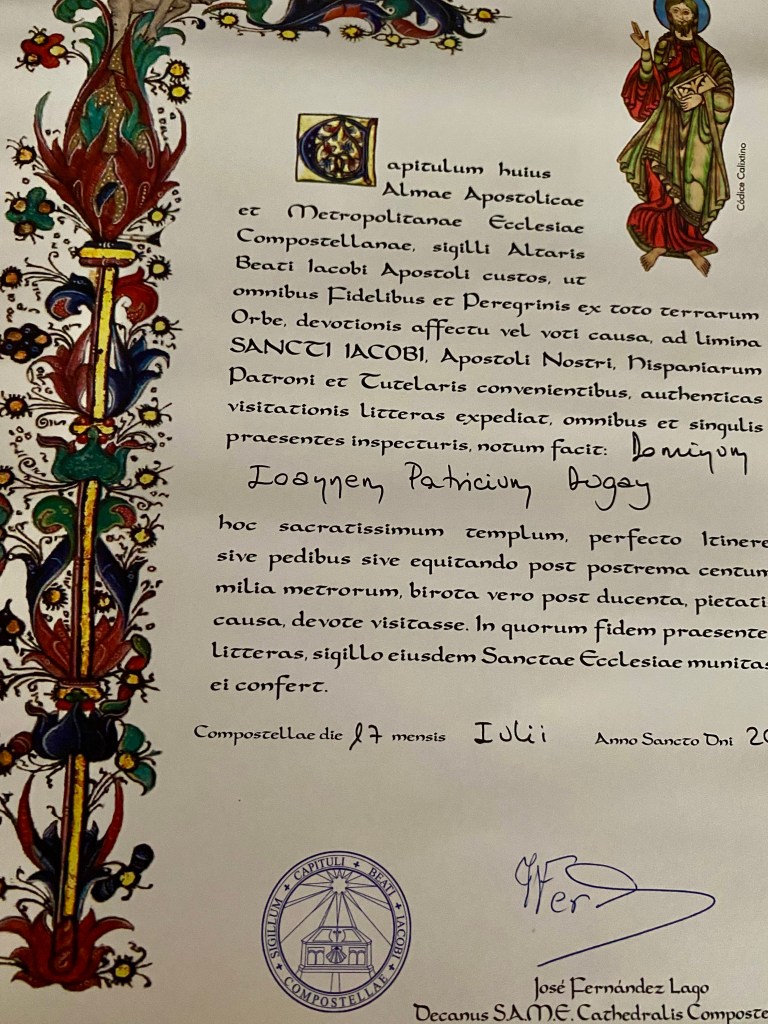 Capitulum huius
Almae Apostolicae
et Metropolitanae Ecclesiae
Compostellanae, sigilli Altaris
Beati Iacobi Apostoli custos, ut
omnibus Fidelibus et Peregrinis ex toto terrarum
Orbe, devotionis affectu vel voti causa, ad limina
SANCTI IACOBI, Apostoli Nostri, Hispaniarum
Patroni et Tutelaris convenientibus, authenticas
visitationis litteras expediat, omnibus et singulis
praesentes inspecturis, notum facit: Dominum
Ioannem Patricium Dugay
hoc sacratissimum templum, perfecto Itinere
sive pedibus sive equitando post postrema centum
milia metrorum, birota vero post ducenta, pietati
causa, devote visitasse. In quorum fidem praesente
litteras, sigillo eiusdem Sanctae Ecclesiae munitas
ei confert.
Compostellae die 17 mensis Iulii Anno Sancto Dni 20
Códice Calixtino
SIGILLUM CAPITULI BEATI IACOBI COMPOSTELLAE
José Fernández Lago
Decanus S.A.M.E. Cathedralis Compost